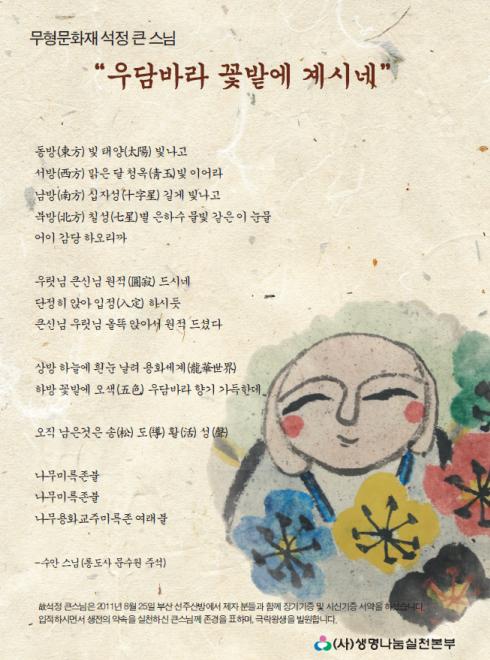 무형문화재 석정 큰 스님
“우담바라 꽃밭에 계시네”
동방(東方) 빛 태양(太陽) 빛나고
서방(西方) 맑은 달 청옥(靑玉)빛 이어라
남방(南方) 십자성(十字星) 길게 빛나고
북방(北方) 칠성(七星)별 은하수 물빛 같은 이 눈물
어이 감당 하오리까
우릿님 큰신님 원적(圓寂) 드시네
단정히 앉아 입정(入定) 하시듯
큰신님 우릿님 올뚝 앉아서 원적 드셨다
상방 하늘에 흰눈 날려 용화세계(龍華世界)
하방 꽃밭에 오색(五色) 우담바라 향기 가득한데
오직 남은것은 송(松) 도(導) 활(活) 성(聲)
나무미륵존불
나무미륵존불
나무용화교주미륵존 여래불
-수안 스님(통도사 문수원 주석)
故석정 큰스님은 2011년 8월 25일 부산 선주산방에서 제자 분들과 함께 장기기증 및 시신기증 서약을 하셨습니다.
입적하시면서 생전의 약속을 실천하신 큰스님께 존경을 표하며, 극락왕생을 발원합니다.
(사)생명나눔실천본부